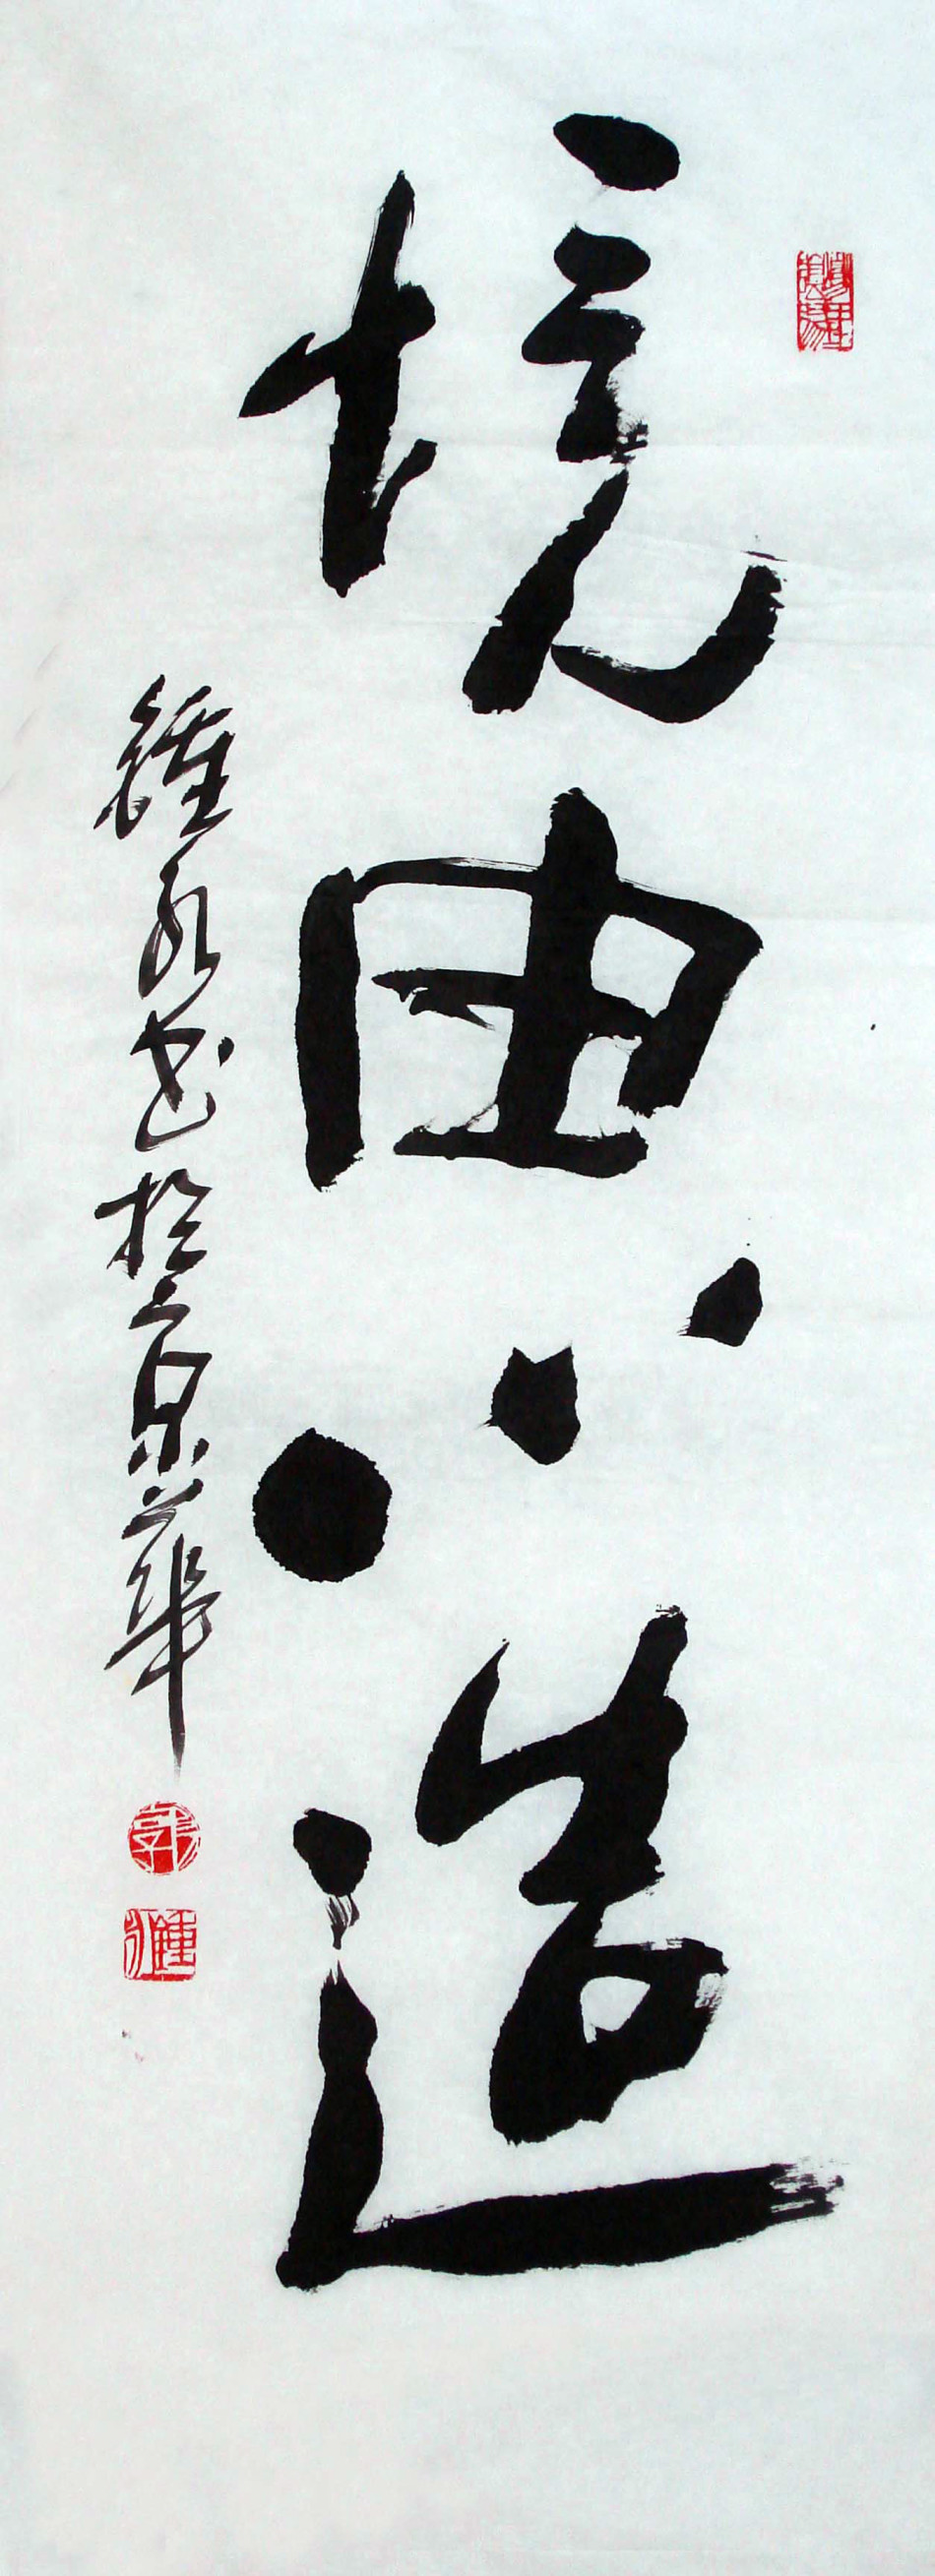 境由心造
鍾永書於京華